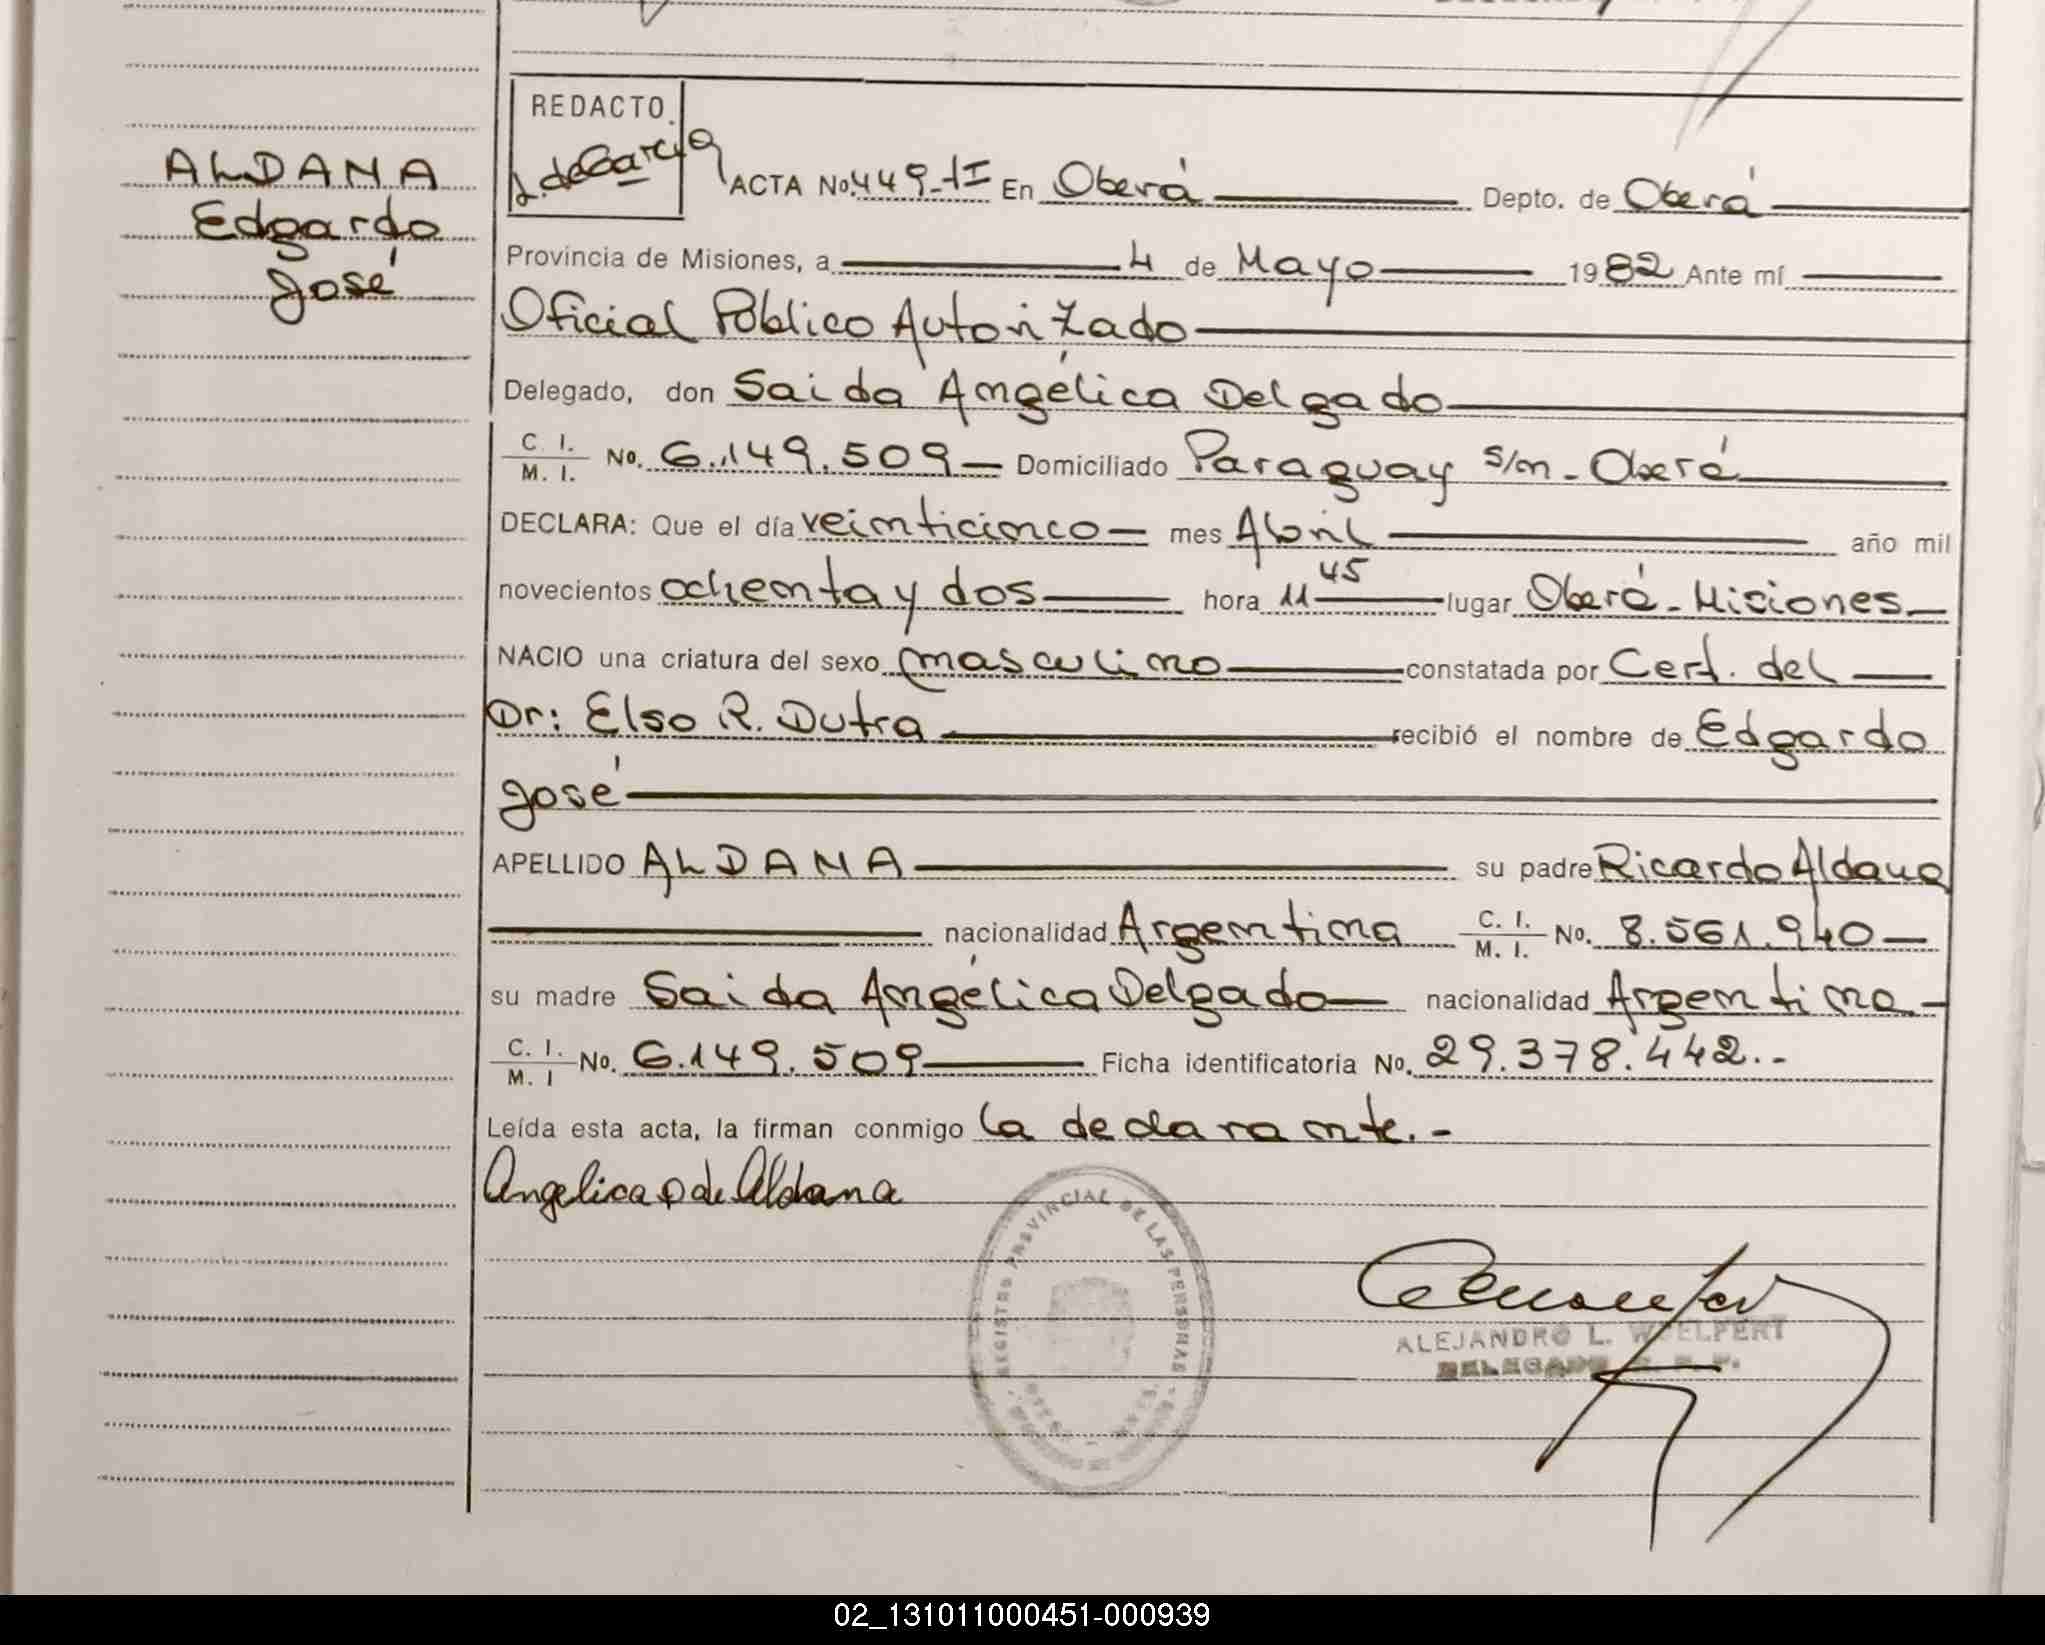 ALDANA
Edgardo
José
REDACTO.
J. de Garcia
ACTA No. 449-tI En Oberá Depto. de Oberá
Provincia de Misiones, a 4 de Mayo 1982 Ante mí
Oficial Público Autorizado
Delegado, don Saida Angélica Delgado
C. I. / M. I. No. 6.149.509 Domiciliado Paraguay s/n - Oberá
DECLARA: Que el día veinticinco mes Abril año mil
novecientos ochenta y dos hora 11 45 lugar Oberá - Misiones
NACIO una criatura del sexo masculino constatada por Cert. del
Dr: Elso R. Dutra recibió el nombre de Edgardo
José
APELLIDO ALDANA su padre Ricardo Aldana
nacionalidad Argentina C. I. / M. I. No. 8.561.940
su madre Saida Angélica Delgado nacionalidad Argentina
C. I. / M. I No. 6.149.509 Ficha identificatoria No. 29.378.442.-
Leída esta acta, la firman conmigo la declarante.-
Angelica D de Aldana
REGISTRO PROVINCIAL DE LAS PERSONAS
ALEJANDRO L. WOELFERT
DELEGADO R. P.
02_131011000451-000939